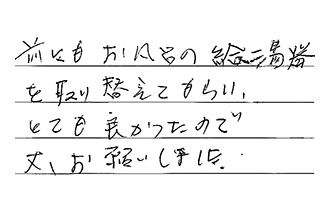 前にもお風呂の給湯器
を取り替えてもらい、
とても良かったので
又、お願いしました。